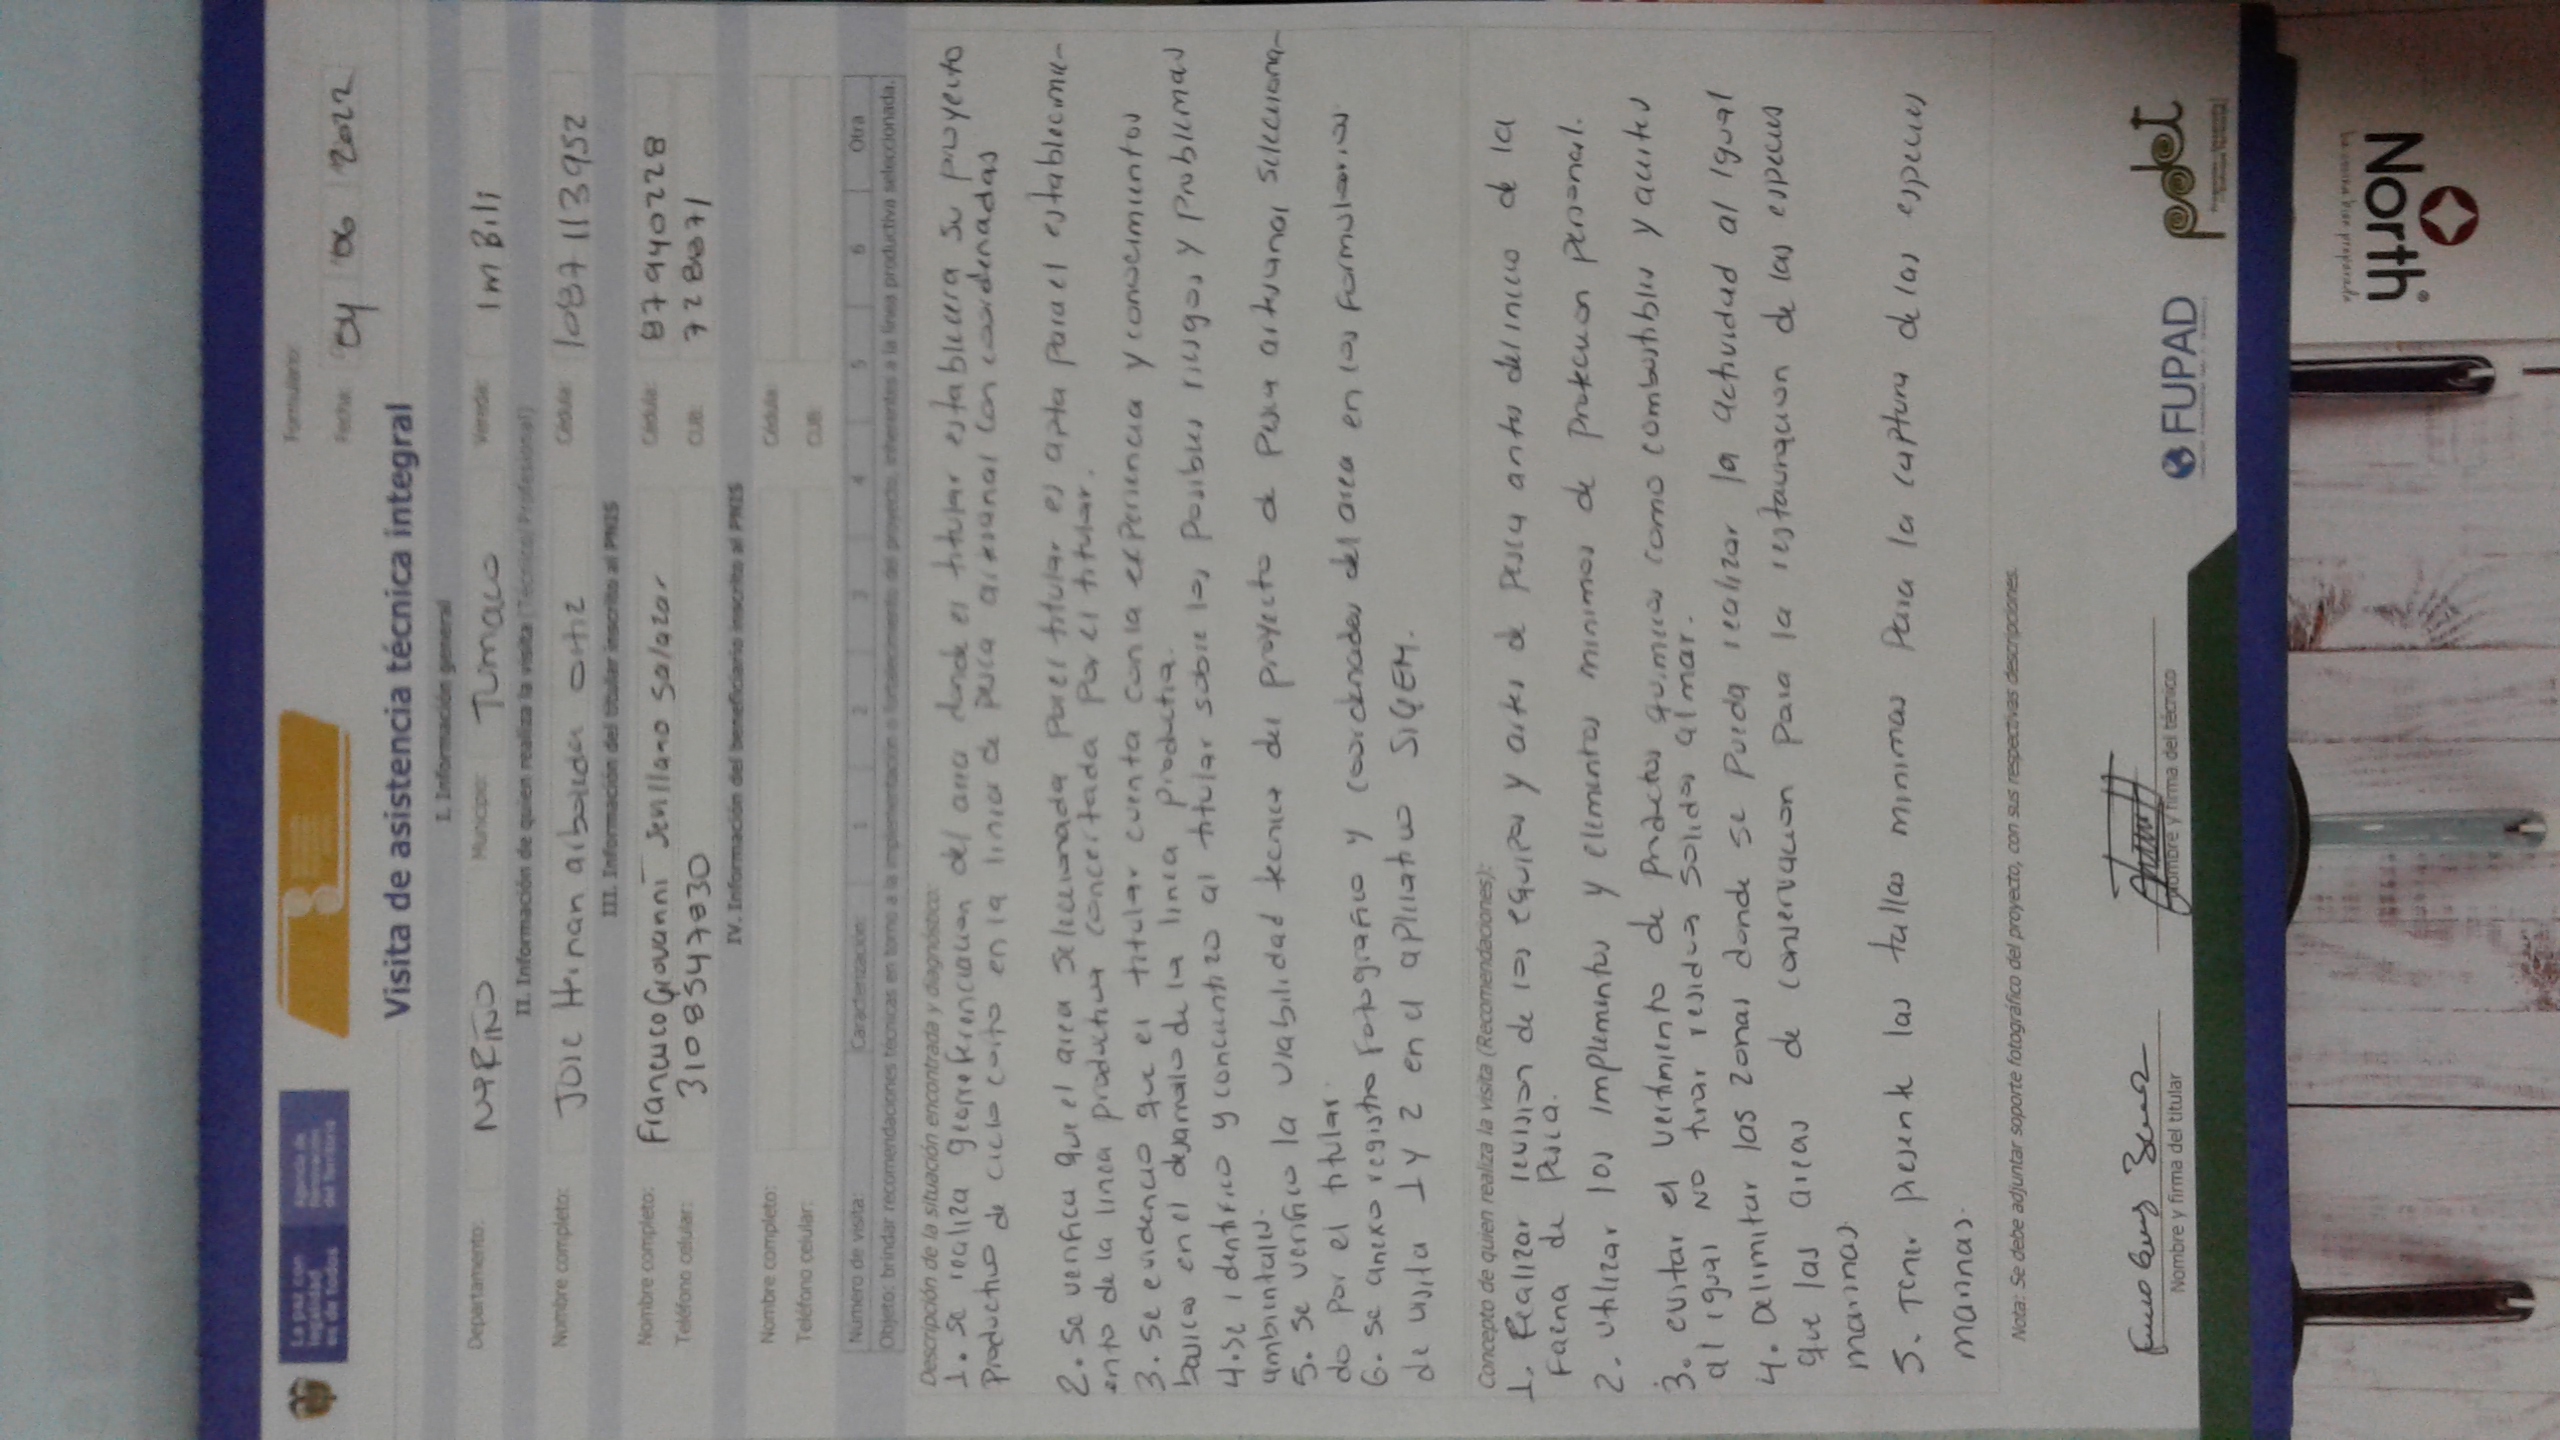 La paz con legalidad es de todos
Agencia de Renovación del Territorio
Formulario:
Fecha: 04 06 2022
Visita de asistencia técnica integral
I. Información general
Departamento: NARIÑO Municipio: TUMACO Vereda: ImBili
II. Información de quien realiza la visita (Técnico/ Profesional)
Nombre completo: Jose Hernan arboleda ortiz Cédula: 1087113952
III. Información del titular inscrito al PNIS
Nombre completo: Francisco Giovanni Sevillano Salazar Cédula: 87940228
Teléfono celular: 3108547830 CUB:
IV. Información del beneficiario inscrito al PNIS
Nombre completo: Cédula:
Teléfono celular: CUB:
Número de visita: Caracterización: 1 2 3 4 5 6 Otra
Objeto: brindar recomendaciones técnicas en torno a la implementación o fortalecimiento del proyecto, inherentes a la línea productiva seleccionada.
Descripción de la situación encontrada y diagnóstico:
1. Se realiza georeferenciacion del area donde el titular establecera su proyecto
productivo de ciclo corto en la linea de pesca artesanal con coordenadas
2. Se verifica que el area seleccionada por el titular es apta para el establecimi-
ento de la linea productiva concertada por el titular.
3. se evidencio que el titular cuenta con la experiencia y conocimientos
basicos en el desarrollo de la linea productiva.
4. se identifico y concientizo al titular sobre los posibles riesgos y problemas
ambientales.
5. se verifico la viabilidad tecnica del proyecto de pesca artesanal selecciona-
do por el titular.
6. se anexo registro fotografico y coordenadas del area en los formularios
de visita 1 y 2 en el aplicativo SIGEM.
Concepto de quien realiza la visita (Recomendaciones):
1. Realizar revision de los equipos y artes de pesca antes del inicio de la
faena de pesca.
2. utilizar los implementos y elementos minimos de proteccion personal.
3. evitar el vertimiento de productos quimicos como combustibles y aceites
al igual NO tirar residuos solidos al mar.
4. Delimitar las zonas donde se pueda realizar la actividad al igual
que las areas de conservacion para la restauracion de las especies
marinas.
5. Tener presente las tallas minimas para la captura de las especies
marinas.
Nota: Se debe adjuntar soporte fotográfico del proyecto, con sus respectivas descripciones.
Nombre y firma del titular
Nombre y firma del técnico
FUPAD
pdet
North